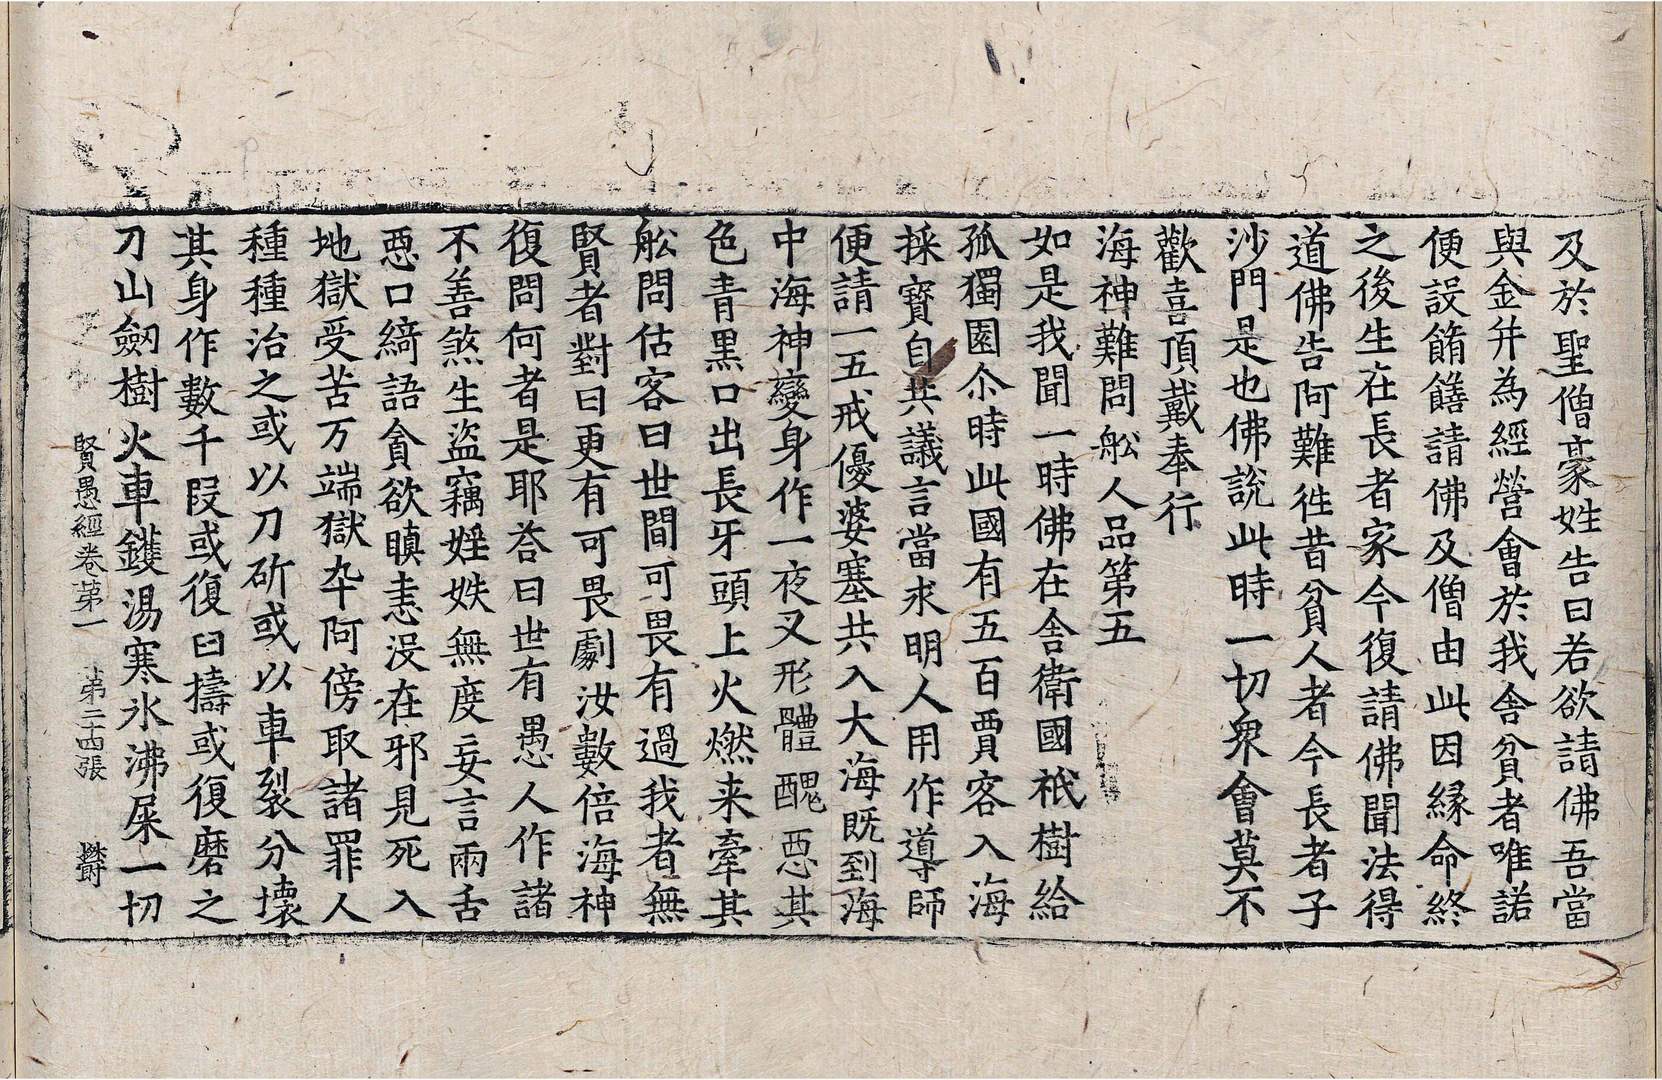 及於聖僧豪姓告曰若欲請佛吾當
與金幷為經營會於我舍貧者唯諾
便設餚饍請佛及僧由此因緣命終
之後生在長者家今復請佛聞法得
道佛告阿難徃昔貧人者今長者子
沙門是也佛說此時一切衆會莫不
歡喜頂戴奉行
海神難問舩人品第五
如是我聞一時佛在舍衛國祇樹給
孤獨園尒時此國有五百賈客入海
採寶自共議言當求明人用作導師
便請一五戒優婆塞共入大海旣到海
中海神變身作一夜叉形體醜惡其
色青黑口出長牙頭上火燃来牽其
舩問估客曰世間可畏有過我者無
賢者對曰更有可畏劇汝數倍海神
復問何者是耶荅曰世有愚人作諸
不善煞生盜竊婬妷無度妄言兩舌
惡口綺語貪欲瞋恚沒在邪見死入
地獄受苦万端獄卒阿傍取諸罪人
種種治之或以刀斫或以車裂分壞
其身作數千段或復臼擣或復磨之
刀山劒樹火車鑊湯寒氷沸屎一切
賢愚經卷第一 第二十四張 欝